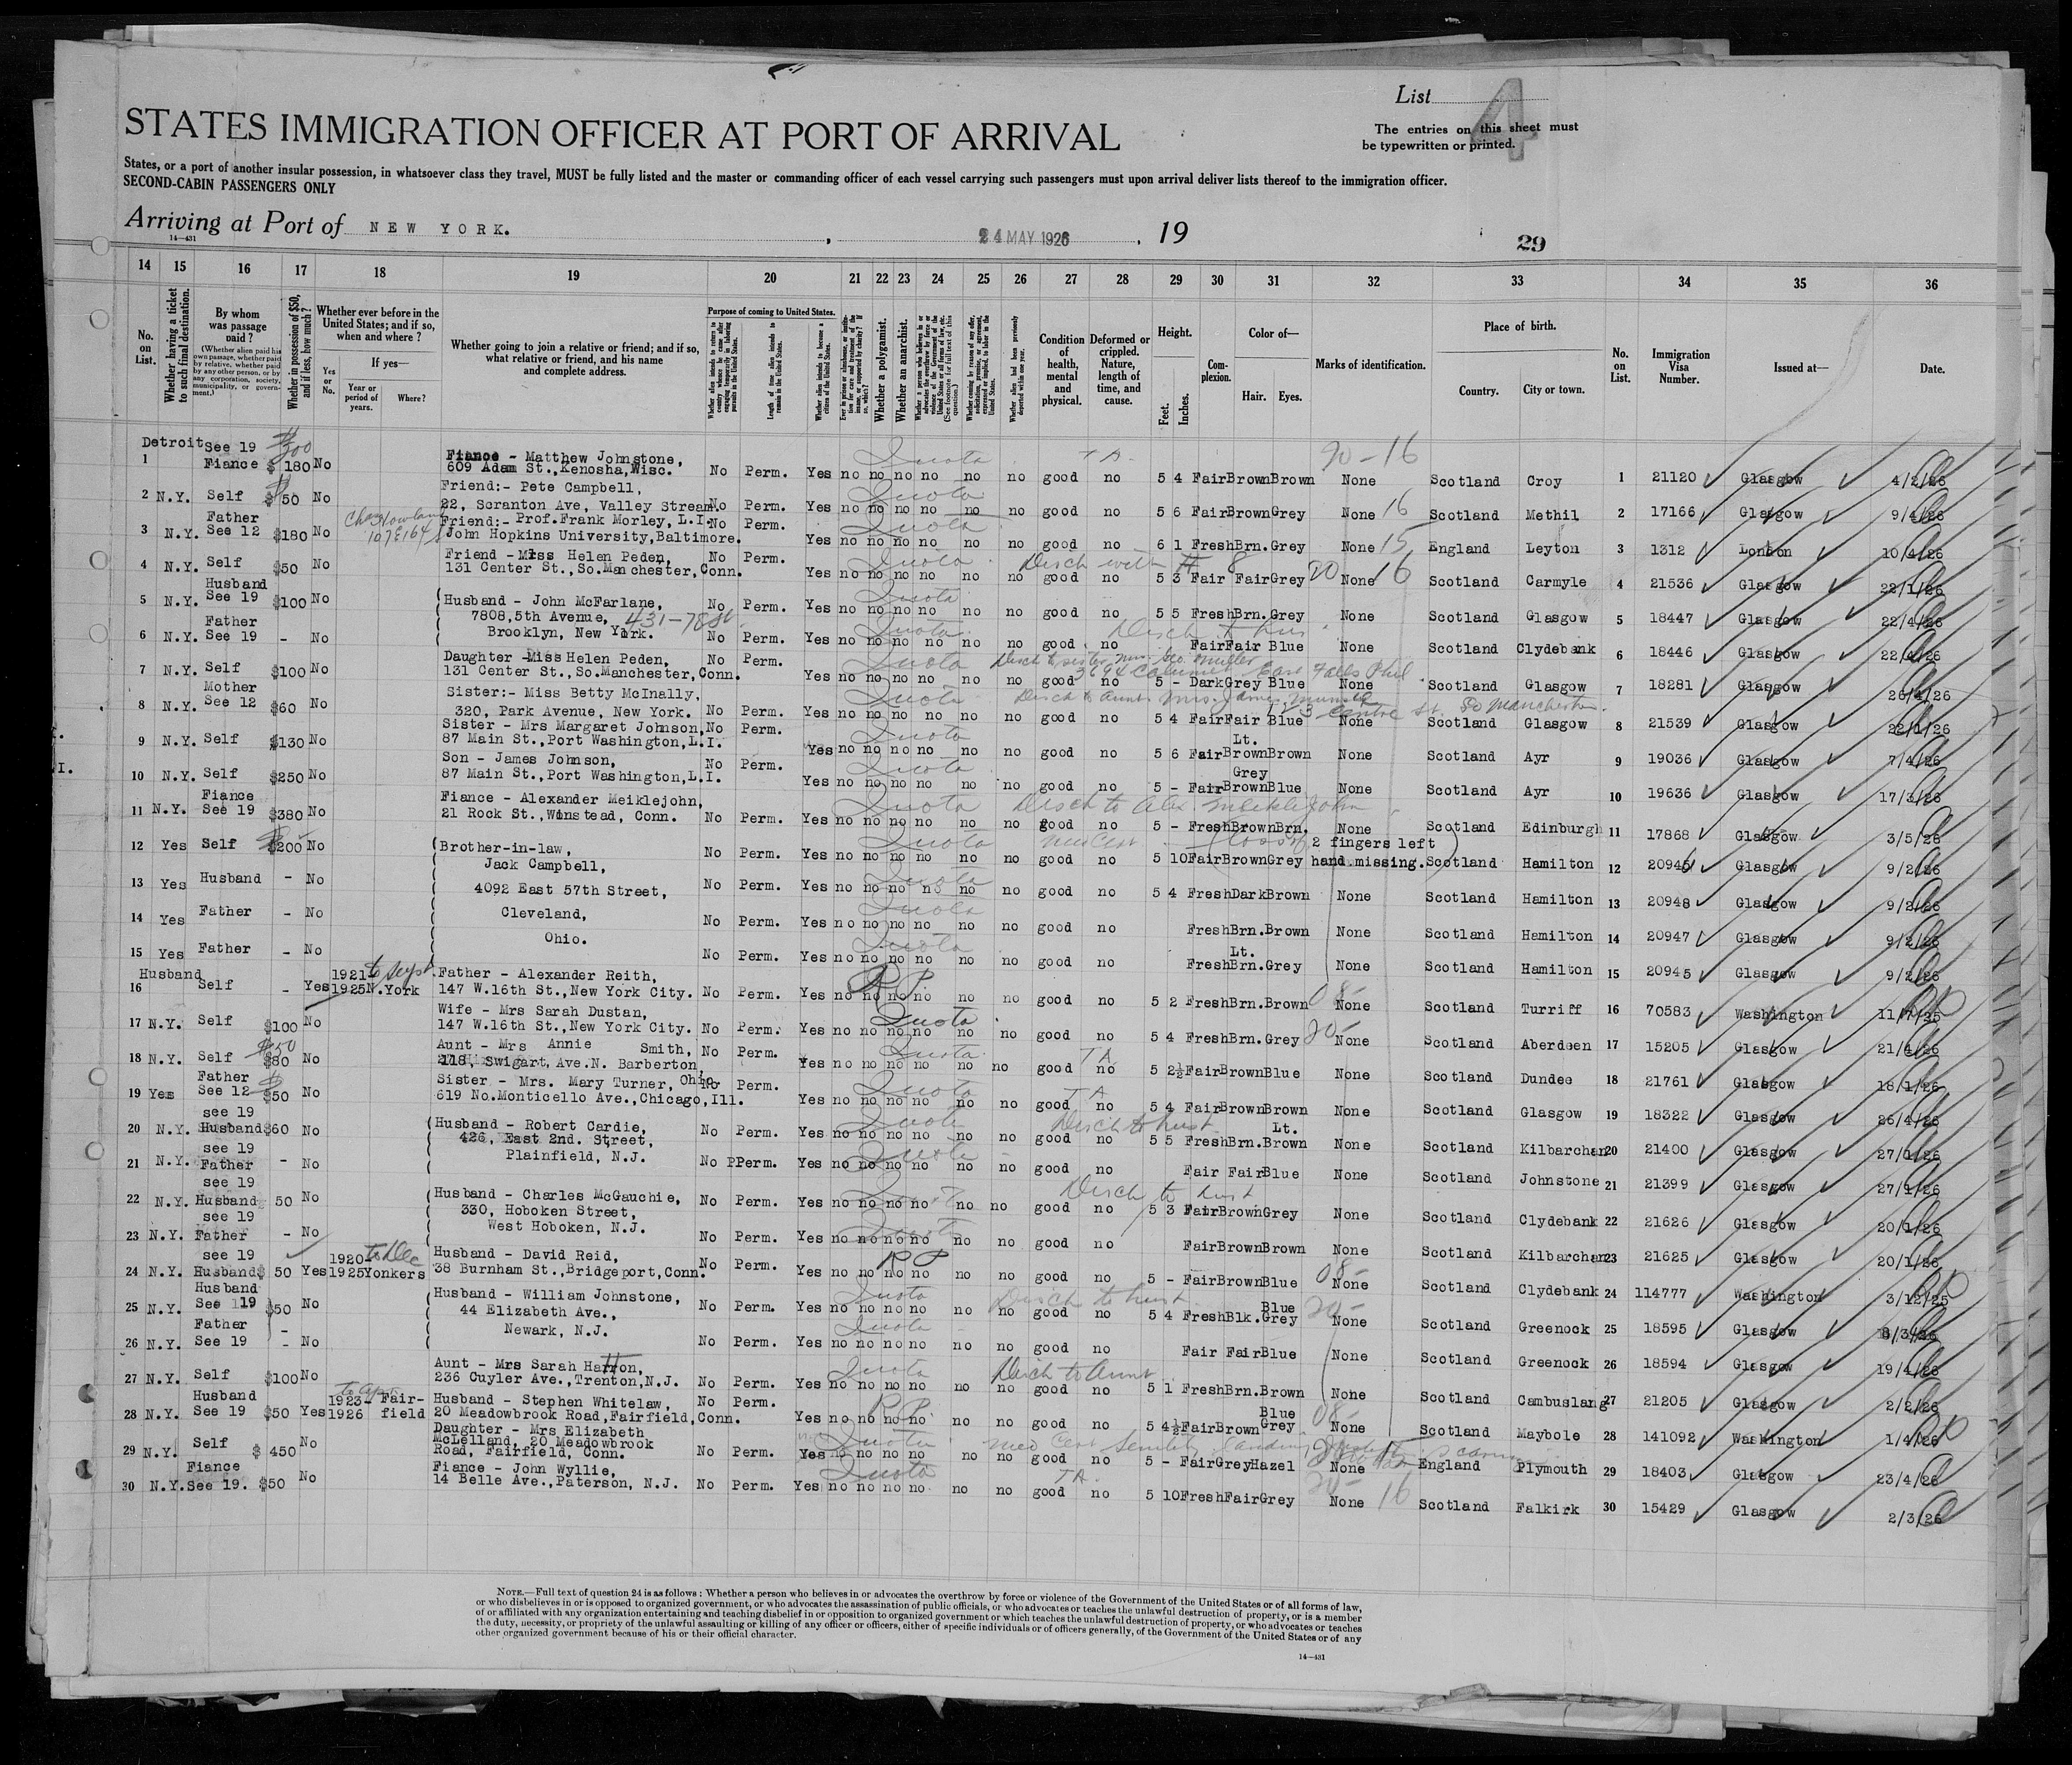 List 4
STATES IMMIGRATION OFFICER AT PORT OF ARRIVAL
The entries on this sheet must
be typewritten or printed.
States, or a port of another insular possession, in whatsoever class they travel, MUST be fully listed and the master or commanding officer of each vessel carrying such passengers must upon arrival deliver lists thereof to the immigration officer.
SECOND-CABIN PASSENGERS ONLY
Arriving at Port of NEW YORK. , 24 MAY 1926 , 19
14—431
29
14 15 16 17 18 19 20 21 22 23 24 25 26 27 28 29 30 31 32 33 34 35 36
No. on List.
Whether having a ticket to such final destination.
By whom was passage paid?
(Whether alien paid his own passage, whether paid by relative, whether paid by any other person, or by any corporation, society, municipality, or government.)
Whether in possession of $50, and if less, how much?
Whether ever before in the United States; and if so, when and where?
Yes or No.
If yes—
Year or period of years.
Where?
Whether going to join a relative or friend; and if so, what relative or friend, and his name and complete address.
Purpose of coming to United States.
Whether alien intends to return to country whence he came after engaging temporarily in laboring pursuits in the United States.
Length of time alien intends to remain in the United States.
Whether alien intends to become a citizen of the United States.
Whether a polygamist.
Whether an anarchist.
Condition of health, mental and physical.
Deformed or crippled. Nature, length of time, and cause.
Height.
Feet. Inches.
Complexion.
Color of—
Hair. Eyes.
Marks of identification.
Place of birth.
Country. City or town.
No. on List.
Immigration Visa Number.
Issued at—
Date.
1 Detroit See 19 Fiance $180 No Fiance - Matthew Johnstone, 609 Adam St., Kenosha, Wisc. No Perm. Yes no no no no no no good no 5 4 Fair Brown Brown None Scotland Croy 1 21120 Glasgow 4/2/26
2 N.Y. Self $50 No Friend:- Pete Campbell, 22, Scranton Ave, Valley Stream. No Perm. Yes no no no no no no good no 5 6 Fair Brown Grey None 16 Scotland Methil 2 17166 Glasgow 9/4/26
3 N.Y. Father See 12 $180 No Friend:- Prof. Frank Morley, L.I. John Hopkins University, Baltimore. No Perm. Yes no no no no no no good no 6 1 Fresh Brn. Grey None 15 England Leyton 3 1312 London 10/4/26
4 N.Y. Self $50 No Friend - Miss Helen Peden, 131 Center St., So. Manchester, Conn. No Perm. Yes no no no no no no good no 5 3 Fair Fair Grey None 16 Scotland Carmyle 4 21536 Glasgow 22/1/26
5 N.Y. Husband See 19 $100 No Husband - John McFarlane, 7808, 5th Avenue, 431-78 St. Brooklyn, New York. No Perm. Yes no no no no no no good no 5 5 Fresh Brn. Grey None Scotland Glasgow 5 18447 Glasgow 22/4/26
6 N.Y. Father See 19 - No No Perm. Yes no no no no no no good no Fair Fair Blue None Scotland Clydebank 6 18446 Glasgow 22/4/26
7 N.Y. Self $100 No Daughter - Miss Helen Peden, 131 Center St., So. Manchester, Conn. No Perm. Yes no no no no no no good no 5 - Dark Grey Blue None Scotland Glasgow 7 18281 Glasgow 26/4/26
8 N.Y. Mother See 12 $60 No Sister:- Miss Betty McInally, 320, Park Avenue, New York. No Perm. Yes no no no no no no good no 5 4 Fair Fair Blue None Scotland Glasgow 8 21539 Glasgow 22/1/26
9 N.Y. Self $130 No Sister - Mrs Margaret Johnson, 87 Main St., Port Washington, L.I. No Perm. Yes no no no no no no good no 5 6 Fair Lt. Brown Brown None Scotland Ayr 9 19036 Glasgow 7/4/26
10 N.Y. Self $250 No Son - James Johnson, 87 Main St., Port Washington, L.I. No Perm. Yes no no no no no no good no 5 - Fair Grey Brown Blue None Scotland Ayr 10 19636 Glasgow 17/3/26
11 N.Y. Fiance See 19 $380 No Fiance - Alexander Meiklejohn, 21 Rock St., Winstead, Conn. No Perm. Yes no no no no no no good no 5 - Fresh Brown Brn. None Scotland Edinburgh 11 17868 Glasgow 3/5/26
12 Yes Self $200 No Brother-in-law, Jack Campbell, No Perm. Yes no no no no no no good no 5 10 Fair Brown Grey 2 fingers left hand missing. Scotland Hamilton 12 20946 Glasgow 9/2/26
13 Yes Husband - No 4092 East 57th Street, No Perm. Yes no no no no no no good no 5 4 Fresh Dark Brown None Scotland Hamilton 13 20948 Glasgow 9/2/26
14 Yes Father - No Cleveland, No Perm. Yes no no no no no no good no Fresh Brn. Brown None Scotland Hamilton 14 20947 Glasgow 9/2/26
15 Yes Father - No Ohio. No Perm. Yes no no no no no no good no Fresh Lt. Brn. Grey None Scotland Hamilton 15 20945 Glasgow 9/2/26
16 Husband Self - Yes 1921 to Sept 1925 N. York Father - Alexander Reith, 147 W. 16th St., New York City. No Perm. Yes no no no no no no good no 5 2 Fresh Brn. Brown None Scotland Turriff 16 70583 Washington 11/7/25
17 N.Y. Self $100 No Wife - Mrs Sarah Dustan, 147 W. 16th St., New York City. No Perm. Yes no no no no no no good no 5 4 Fresh Brn. Grey None Scotland Aberdeen 17 15205 Glasgow 21/4/26
18 N.Y. Self $80 No Aunt - Mrs Annie Smith, 218, Swigart, Ave. N. Barberton, Ohio. No Perm. Yes no no no no no no good no 5 2½ Fair Brown Blue None Scotland Dundee 18 21761 Glasgow 18/1/26
19 Yes Father See 12 $50 No Sister - Mrs. Mary Turner, 619 No. Monticello Ave., Chicago, Ill. No Perm. Yes no no no no no no good no 5 4 Fair Brown Brown None Scotland Glasgow 19 18322 Glasgow 26/4/26
20 N.Y. see 19 Husband $60 No Husband - Robert Cardie, 426, East 2nd. Street, Plainfield, N.J. No Perm. Yes no no no no no no good no 5 5 Fresh Brn. Lt. Brown None Scotland Kilbarchan 20 21400 Glasgow 27/1/26
21 N.Y. see 19 Father - No No PPerm. Yes no no no no no no good no Fair Fair Blue None Scotland Johnstone 21 21399 Glasgow 27/1/26
22 N.Y. see 19 Husband 50 No Husband - Charles McGauchie, 330, Hoboken Street, West Hoboken, N.J. No Perm. Yes no no no no no no good no 5 3 Fair Brown Grey None Scotland Clydebank 22 21626 Glasgow 20/1/26
23 N.Y. see 19 Father - No No Perm. Yes no no no no no no good no Fair Brown Brown None Scotland Kilbarchan 23 21625 Glasgow 20/1/26
24 N.Y. see 19 Husband $50 Yes 1920- to Dec 1925 Yonkers Husband - David Reid, 38 Burnham St., Bridgeport, Conn. No Perm. Yes no no no no no no good no 5 - Fair Brown Blue None Scotland Clydebank 24 114777 Washington 3/12/25
25 N.Y. Husband See 19 $50 No Husband - William Johnstone, 44 Elizabeth Ave., Newark, N.J. No Perm. Yes no no no no no no good no 5 4 Fresh Blk. Blue Grey None Scotland Greenock 25 18595 Glasgow
26 N.Y. Father See 19 - No No Perm. Yes no no no no no no good no Fair Fair Blue None Scotland Greenock 26 18594 Glasgow 19/4/26
27 N.Y. Self $100 No Aunt - Mrs Sarah 236 Cuyler Ave., Trenton, N.J. No Perm. Yes no no no no no no good no 5 1 Fresh Brn. Brown None Scotland Cambuslang 27 21205 Glasgow 2/2/26
28 N.Y. Husband See 19 $50 Yes 1923- 1926 Fairfield Husband - Stephen Whitelaw, 20 Meadowbrook Road, Fairfield, Conn. No Perm. Yes no no no no no no good no 5 4½ Fair Brown Blue Grey None Scotland Maybole 28 141092 Washington 1/4/26
29 N.Y. Self $450 No Daughter - Mrs Elizabeth McLelland, 20 Meadowbrook Road, Fairfield, Conn. No Perm. Yes no no no no no no good no 5 - Fair Grey Hazel None England Plymouth 29 18403 Glasgow 23/4/26
30 N.Y. Fiance See 19. $50 No Fiance - John Wyllie, 14 Belle Ave., Paterson, N.J. No Perm. Yes no no no no no no good no 5 10 Fresh Fair Grey None 16 Scotland Falkirk 30 15429 Glasgow 2/3/26
NOTE.—Full text of question 24 is as follows: Whether a person who believes in or advocates the overthrow by force or violence of the Government of the United States or of all forms of law,
or who disbelieves in or is opposed to organized government, or who advocates the assassination of public officials, or who advocates or teaches the unlawful destruction of property, or is a member
of or affiliated with any organization entertaining and teaching disbelief in or opposition to organized government or which teaches the unlawful destruction of property, or who advocates or teaches
the duty, necessity, or propriety of the unlawful assaulting or killing of any officer or officers, either of specific individuals or of officers generally, of the Government of the United States or of any
other organized government because of his or their official character.
14—431